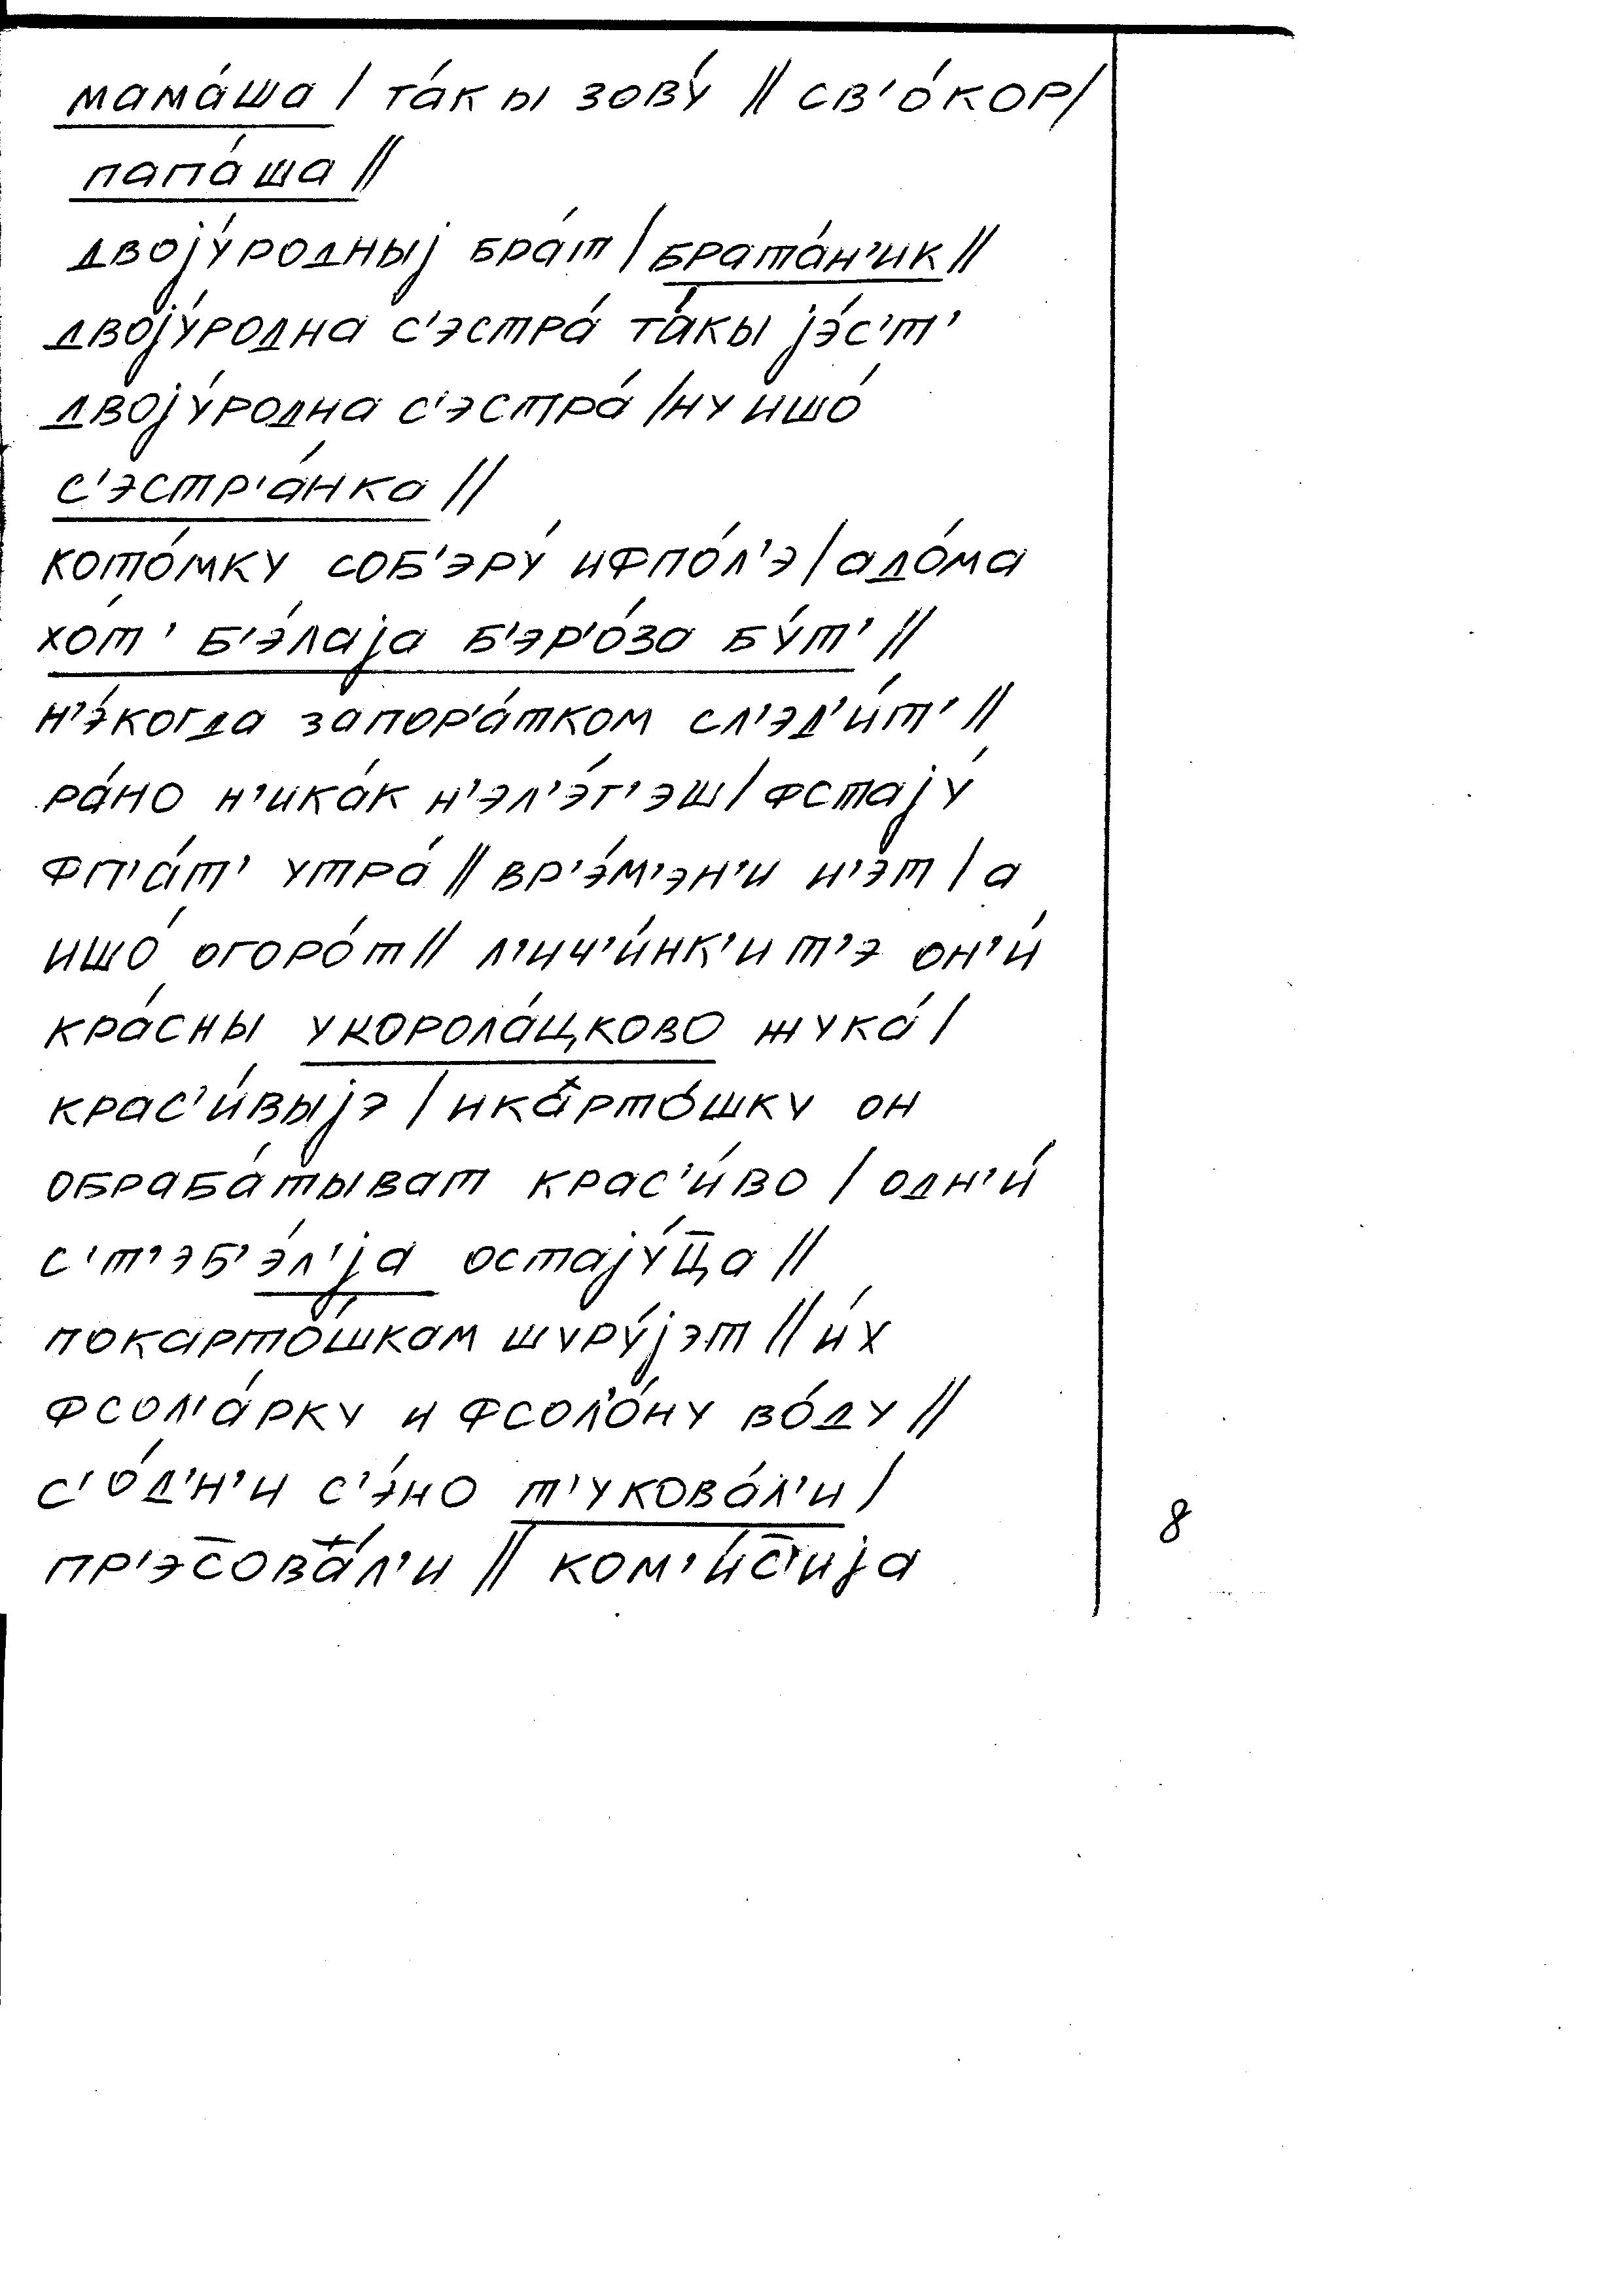 мама́ша / та́к ы зову́ // св'о́кор/
папа́ша //
двоjу́родныj бра́т / брата́н'ик //
двоjу́родна с'эстра́ та́кы jэ́с'т'
двоjу́родна с'эстра́ /ну ишо́
с'эстр'а́нка //
кото́мку соб'эру́ ифпо́л'э / адо́ма
хо́т' б'э́лаjа б'эр'о́за бу́т' //
н'э́когда запор'а́тком сл'эд'и́т' //
ра́но н'ика́к н'эл'э́г'эш / фстаjу́
фп'а́т' утра́ // вр'э́м'эн'и н'э́т / а
ишо́ огоро́т // л'ич'и́нк'и т'э он'и́
кра́сны укорола́цково жука́ /
крас'и́выjэ / ика̂рто́шку он
обраба́тыват крас'и́во / одн'и́
с'т'эб'э́л'jа остаjу́ц̄а //
покарто́шкам шуру́jэт // и́х
фсол'а́рку и фсол'о́ну во́ду //
с'о́д'н'и с'э́но т'укова́л'и /
пр'эс̄ова́л'и // ком'и́с̄'иjа
8